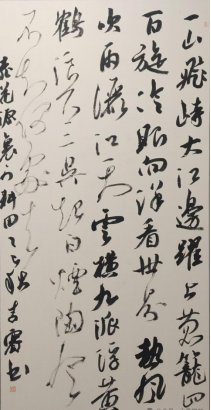 一山飛峙大江邊躍上葱籠四
百旋冷眼向洋看世界熱風
吹雨灑江天雲橫九派浮黄
鶴浪下三吳起白煙陶令
不知何處去
桃花源裏可耕田